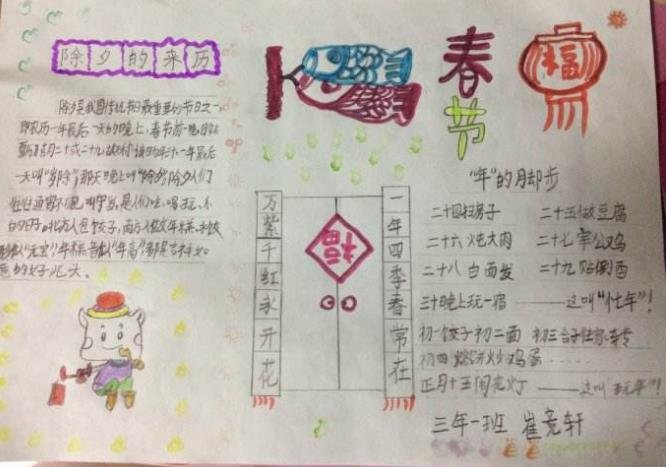 除夕的来历
除夕是我国传统节日最重要的节日之一,
即农历一年最后一天的晚上,春节前一晚,因
一天叫"岁除"那天晚上叫"除夕"除夕人们
往往通宵不眠,叫守岁,
的日子。北方人包饺子,南方人做年糕。水饺
形似"元宝"年糕音似"年高"都是吉祥如
意的好兆头。
春节
福
"年"的脚步
二十四扫房子
二十五做豆腐
二十六炖大肉
二十七宰公鸡
二十八白面发
二十九贴倒酉
三十晚上玩一宿——这叫"忙年"!
初一饺子初二面 初三合子往家转
初四烙饼炒鸡蛋……
正月十五闹花灯——这叫"玩年"!
三年一班 崔竞轩
一年四季春常在
万紫千红永开花
福